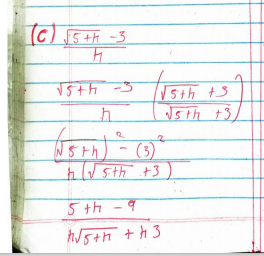 (c) √5+h - 3 / h
√5+h - 3 / h (√5+h + 3 / √5+h + 3)
(√5+h)² - (3)² / h(√5+h + 3)
5 + h - 9 / h√5+h + h3